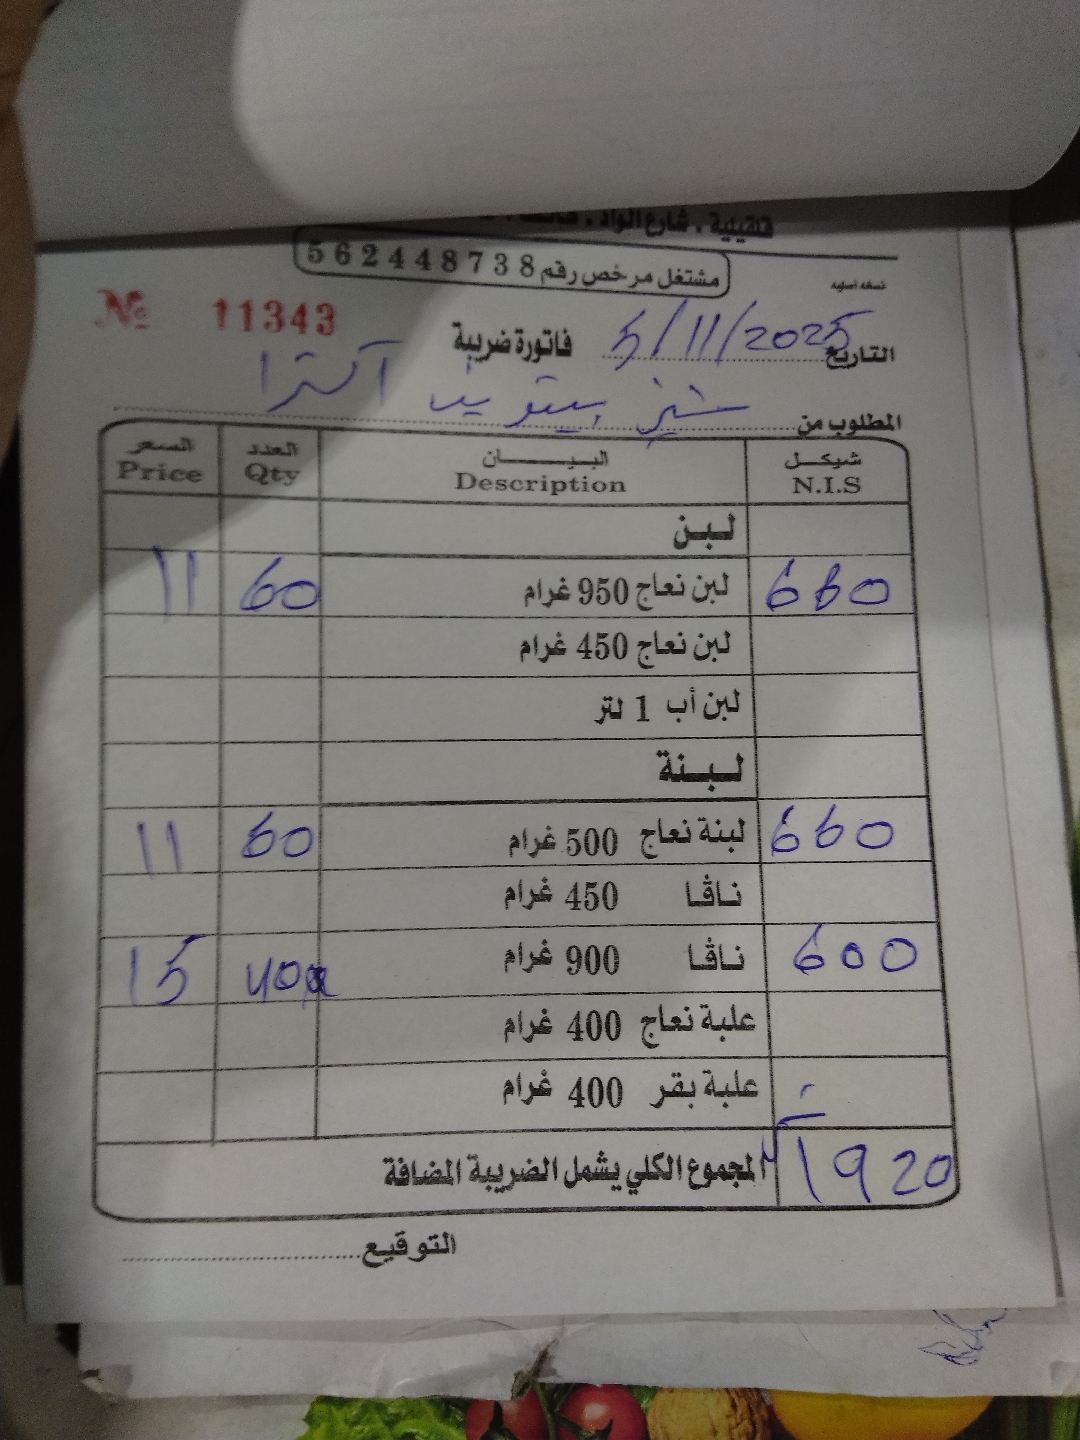 قلقيلية . شارع الواد .
مشتغل مرخص رقم 562448738
نسخه اصليه
№ 11343
فاتورة ضريبة
التاريخ 5/11/2025
المطلوب من
السعر العدد البيــــان شيكل
Price Qty Description N.I.S
لبن
11 60 لبن نعاج 950 غرام 660
لبن نعاج 450 غرام
لبن أب 1 لتر
لبنة
11 60 لبنة نعاج 500 غرام 660
ناڤا 450 غرام
15 40 ناڤا 900 غرام 600
علبة نعاج 400 غرام
علبة بقر 400 غرام
المجموع الكلي يشمل الضريبة المضافة 1920
التوقيع